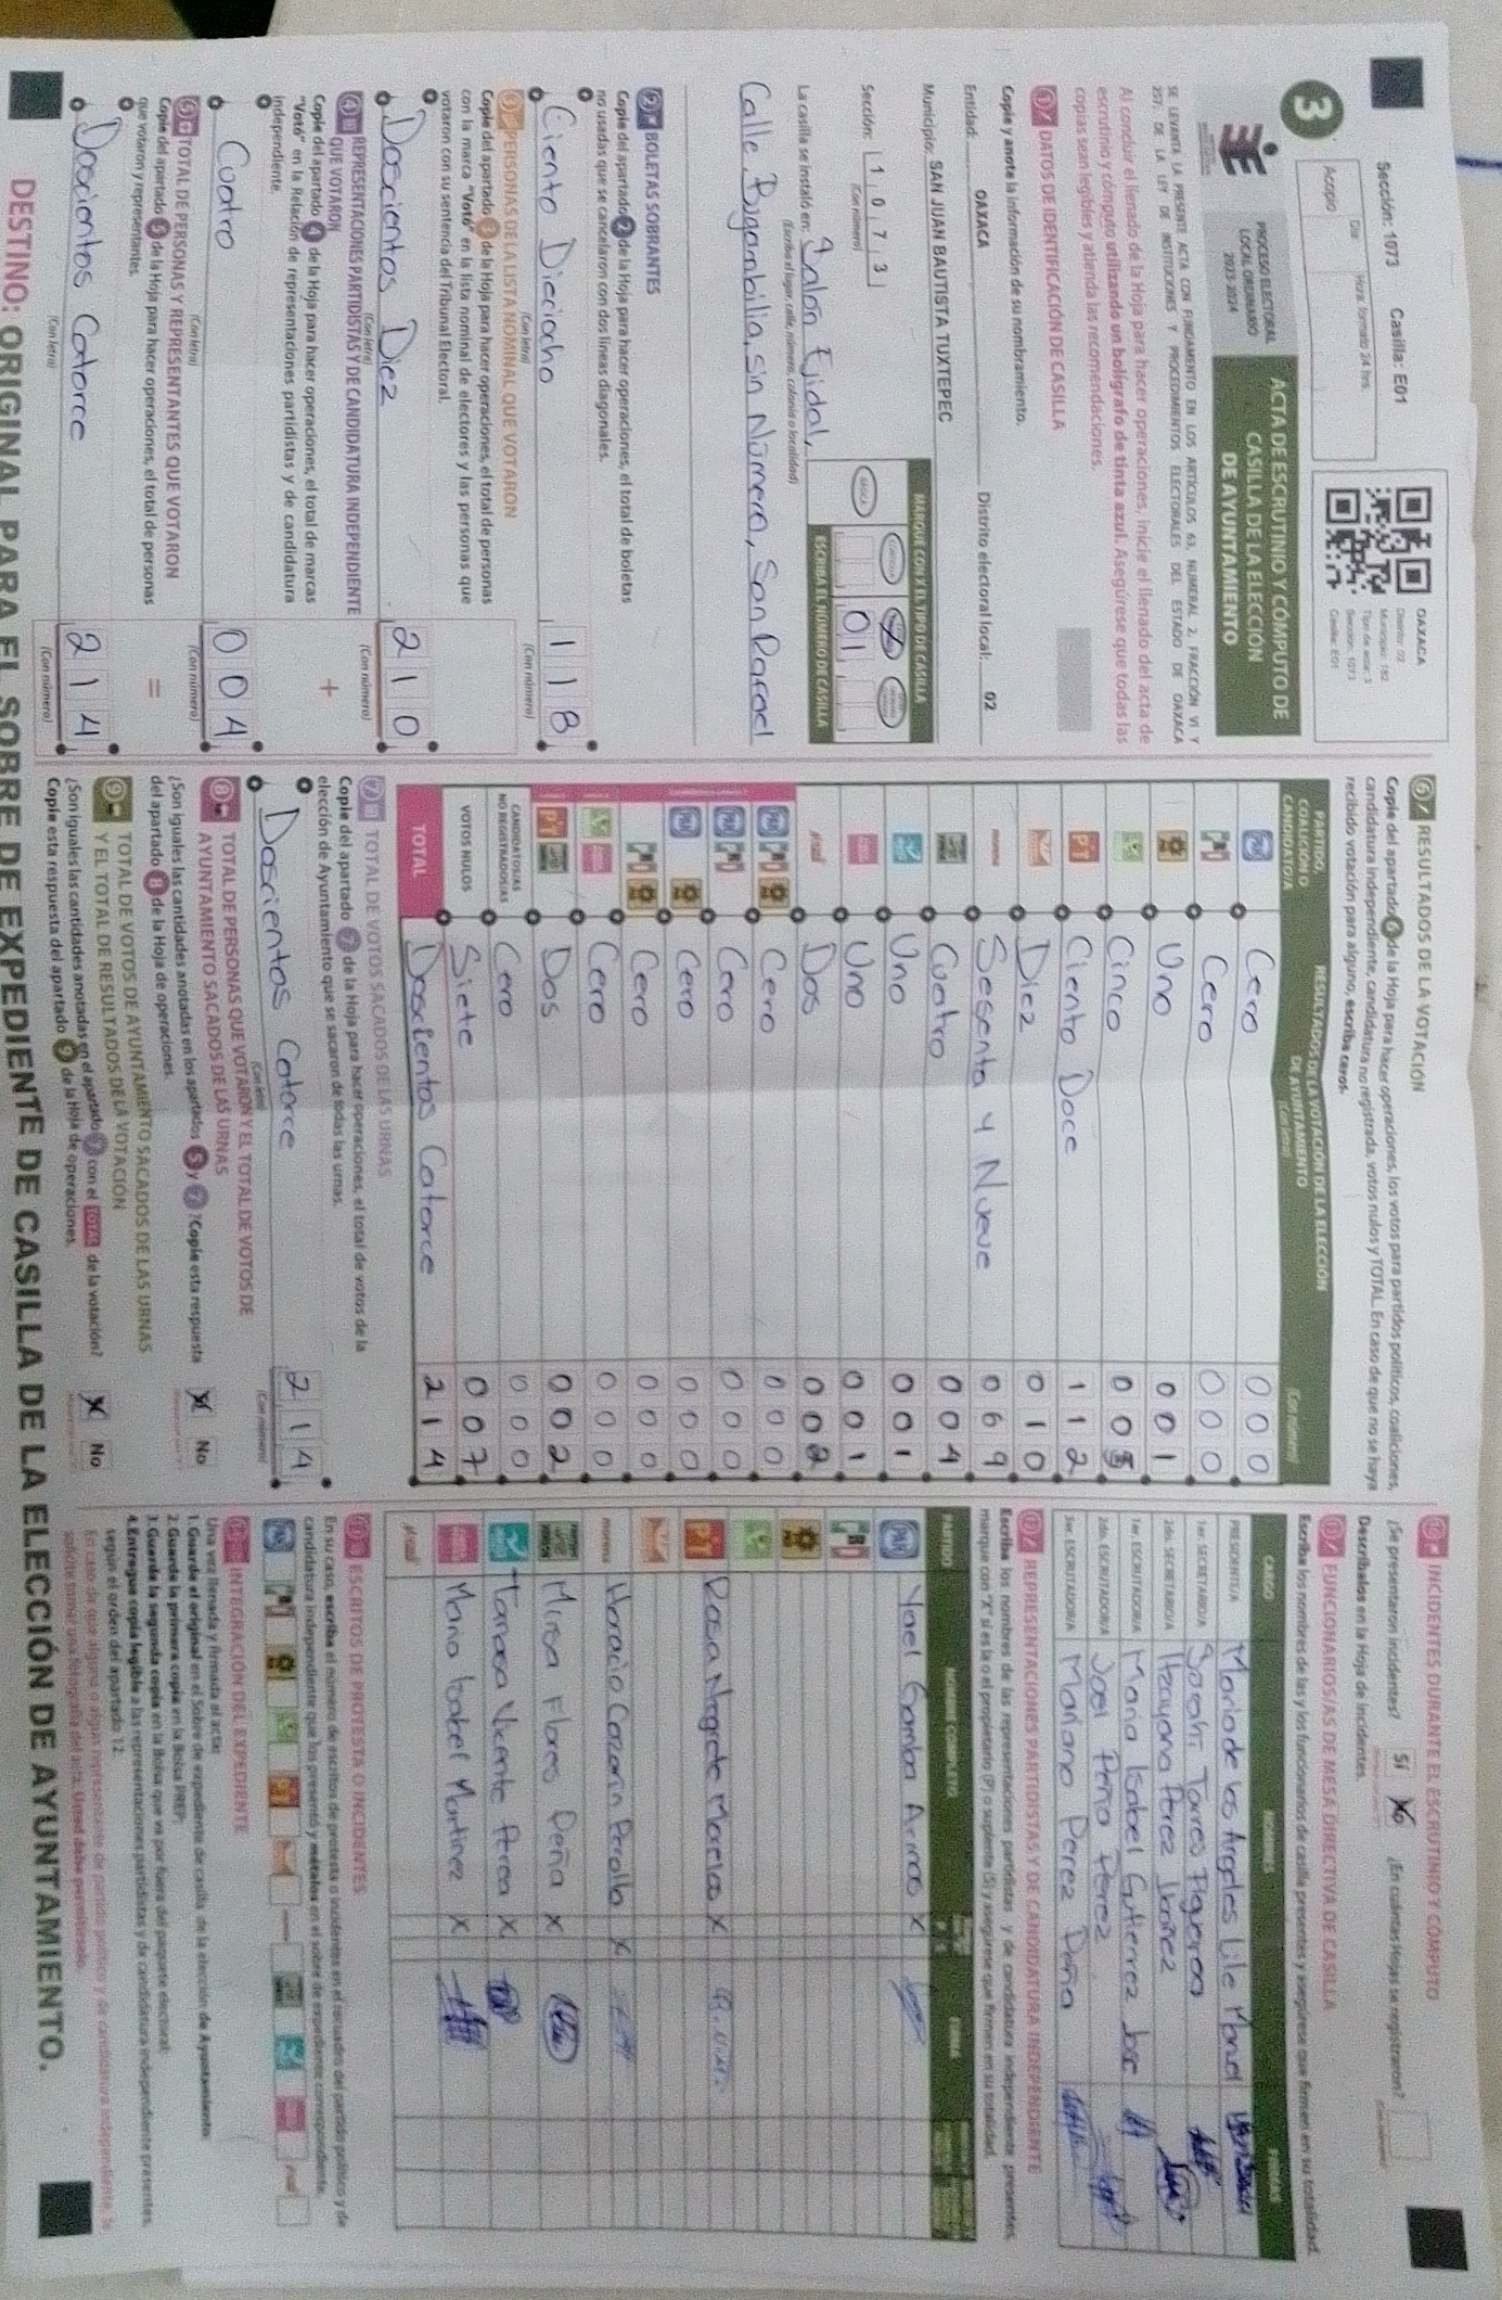 Sección: 1073 Casilla: E01
Acopio
Día Hora: formato 24 hrs.
OAXACA
Distrito: 02
Municipio: 182
Tipo de acta: 3
Sección: 1073
Casilla: E01
3
PROCESO ELECTORAL
LOCAL ORDINARIO
2023-2024
ACTA DE ESCRUTINIO Y CÓMPUTO DE
CASILLA DE LA ELECCIÓN
DE AYUNTAMIENTO
SE LEVANTA LA PRESENTE ACTA CON FUNDAMENTO EN LOS ARTÍCULOS 63, NUMERAL 2, FRACCIÓN VI Y
257; DE LA LEY DE INSTITUCIONES Y PROCEDIMIENTOS ELECTORALES DEL ESTADO DE OAXACA
Al concluir el llenado de la Hoja para hacer operaciones, inicie el llenado del acta de
escrutinio y cómputo utilizando un bolígrafo de tinta azul. Asegúrese que todas las
copias sean legibles y atienda las recomendaciones.
1 DATOS DE IDENTIFICACIÓN DE CASILLA
Copie y anote la información de su nombramiento.
Entidad: OAXACA Distrito electoral local: 02
Municipio: SAN JUAN BAUTISTA TUXTEPEC
Sección: 1 0 7 3
(Con número)
MARQUE CON X EL TIPO DE CASILLA
BÁSICA
X
ESCRIBA EL NÚMERO DE CASILLA
0 1
La casilla se instaló en: Salón Ejidal,
(Escriba el lugar, calle, número, colonia o localidad)
Calle, Bugambilia, sin Número, San Rafael
2 BOLETAS SOBRANTES
Copie del apartado 2 de la Hoja para hacer operaciones, el total de boletas
no usadas que se cancelaron con dos líneas diagonales.
Ciento Dieciocho 1 1 8
(Con letra) (Con número)
3 PERSONAS DE LA LISTA NOMINAL QUE VOTARON
Copie del apartado 3 de la Hoja para hacer operaciones, el total de personas
con la marca "Votó" en la lista nominal de electores y las personas que
votaron con su sentencia del Tribunal Electoral.
Doscientos Diez 2 1 0
(Con letra) (Con número)
4 REPRESENTACIONES PARTIDISTAS Y DE CANDIDATURA INDEPENDIENTE
QUE VOTARON
+
Copie del apartado 4 de la Hoja para hacer operaciones, el total de marcas
"Votó" en la Relación de representaciones partidistas y de candidatura
independiente.
Cuatro 0 0 4
(Con letra) (Con número)
5 TOTAL DE PERSONAS Y REPRESENTANTES QUE VOTARON
=
Copie del apartado 5 de la Hoja para hacer operaciones, el total de personas
que votaron y representantes.
Doscientos Catorce 2 1 4
(Con letra) (Con número)
6 RESULTADOS DE LA VOTACIÓN
Copie del apartado 6 de la Hoja para hacer operaciones, los votos para partidos políticos, coaliciones,
candidatura independiente, candidatura no registrada, votos nulos y TOTAL. En caso de que no se haya
recibido votación para alguno, escriba ceros.
PARTIDO,
COALICIÓN O
CANDIDATO/A
RESULTADOS DE LA VOTACIÓN DE LA ELECCIÓN
DE AYUNTAMIENTO
(Con letra) (Con número)
PAN Cero 0 0 0
PRI Cero 0 0 0
PRD Uno 0 0 1
Cinco 0 0 5
PT Ciento Doce 1 1 2
Diez 0 1 0
morena Sesenta y Nueve 0 6 9
Cuatro 0 0 4
Uno 0 0 1
Uno 0 0 1
Dos 0 0 2
PAN PRI PRD Cero 0 0 0
PAN PRI Cero 0 0 0
PAN PRD Cero 0 0 0
PRI PRD Cero 0 0 0
Cero 0 0 0
PT Dos 0 0 2
CANDIDATOS/AS
NO REGISTRADOS/AS Cero 0 0 0
VOTOS NULOS Siete 0 0 7
TOTAL Doscientos Catorce 2 1 4
7 TOTAL DE VOTOS SACADOS DE LAS URNAS
Copie del apartado 7 de la Hoja para hacer operaciones, el total de votos de la
elección de Ayuntamiento que se sacaron de todas las urnas.
Doscientos Catorce 2 1 4
(Con letra) (Con número)
8 TOTAL DE PERSONAS QUE VOTARON Y EL TOTAL DE VOTOS DE
AYUNTAMIENTO SACADOS DE LAS URNAS
¿Son iguales las cantidades anotadas en los apartados 5 y 7? Copie esta respuesta
del apartado 8 de la Hoja de operaciones.
X No
9 TOTAL DE VOTOS DE AYUNTAMIENTO SACADOS DE LAS URNAS
Y EL TOTAL DE RESULTADOS DE LA VOTACIÓN
¿Son iguales las cantidades anotadas en el apartado 7 con el TOTAL de la votación?
Copie esta respuesta del apartado 9 de la Hoja de operaciones.
X No
10 INCIDENTES DURANTE EL ESCRUTINIO Y CÓMPUTO
¿Se presentaron incidentes? Sí X ¿En cuántas Hojas se registraron?
Descríbalos en la Hoja de incidentes.
11 FUNCIONARIOS/AS DE MESA DIRECTIVA DE CASILLA
Escriba los nombres de las y los funcionarios de casilla presentes y asegúrese que firmen en su totalidad.
CARGO NOMBRES FIRMAS
PRESIDENTE/A Maria de los Angeles Lile
1er. SECRETARIO/A Torres Figueroa
2do. SECRETARIO/A Perez
1er. ESCRUTADOR/A Maria Isabel Gutierrez Jose
2do. ESCRUTADOR/A Joel Peña Perez
3er. ESCRUTADOR/A Mariano Perez Peña
12 REPRESENTACIONES PARTIDISTAS Y DE CANDIDATURA INDEPENDIENTE
Escriba los nombres de las representaciones partidistas y de candidatura independiente presentes,
marque con "X" si es la o el propietario (P) o suplente (S) y asegúrese que firmen en su totalidad.
PARTIDO NOMBRE COMPLETO FIRMA
PAN Yael Gamboa X
PRI
PRD
PT Rosa Negrete Morelos X
morena Horacio X
Mirsa Flores Peña X
Vicente Perea X
Mario Isabel Martinez X
13 ESCRITOS DE PROTESTA O INCIDENTES
En su caso, escriba el número de escritos de protesta o incidentes en el recuadro del partido político y de
candidatura independiente que los presentó y métalos en el sobre de expediente correspondiente.
14 INTEGRACIÓN DEL EXPEDIENTE
Una vez llenada y firmada el acta:
1. Guarde el original en el Sobre de expediente de casilla de la elección de Ayuntamiento.
2. Guarde la primera copia en la Bolsa PREP.
3. Guarde la segunda copia en la Bolsa que va por fuera del paquete electoral.
4. Entregue copia legible a las representaciones partidistas y de candidatura independiente presentes,
según el orden del apartado 12.
DESTINO: ORIGINAL PARA EL SOBRE DE EXPEDIENTE DE CASILLA DE LA ELECCIÓN DE AYUNTAMIENTO.